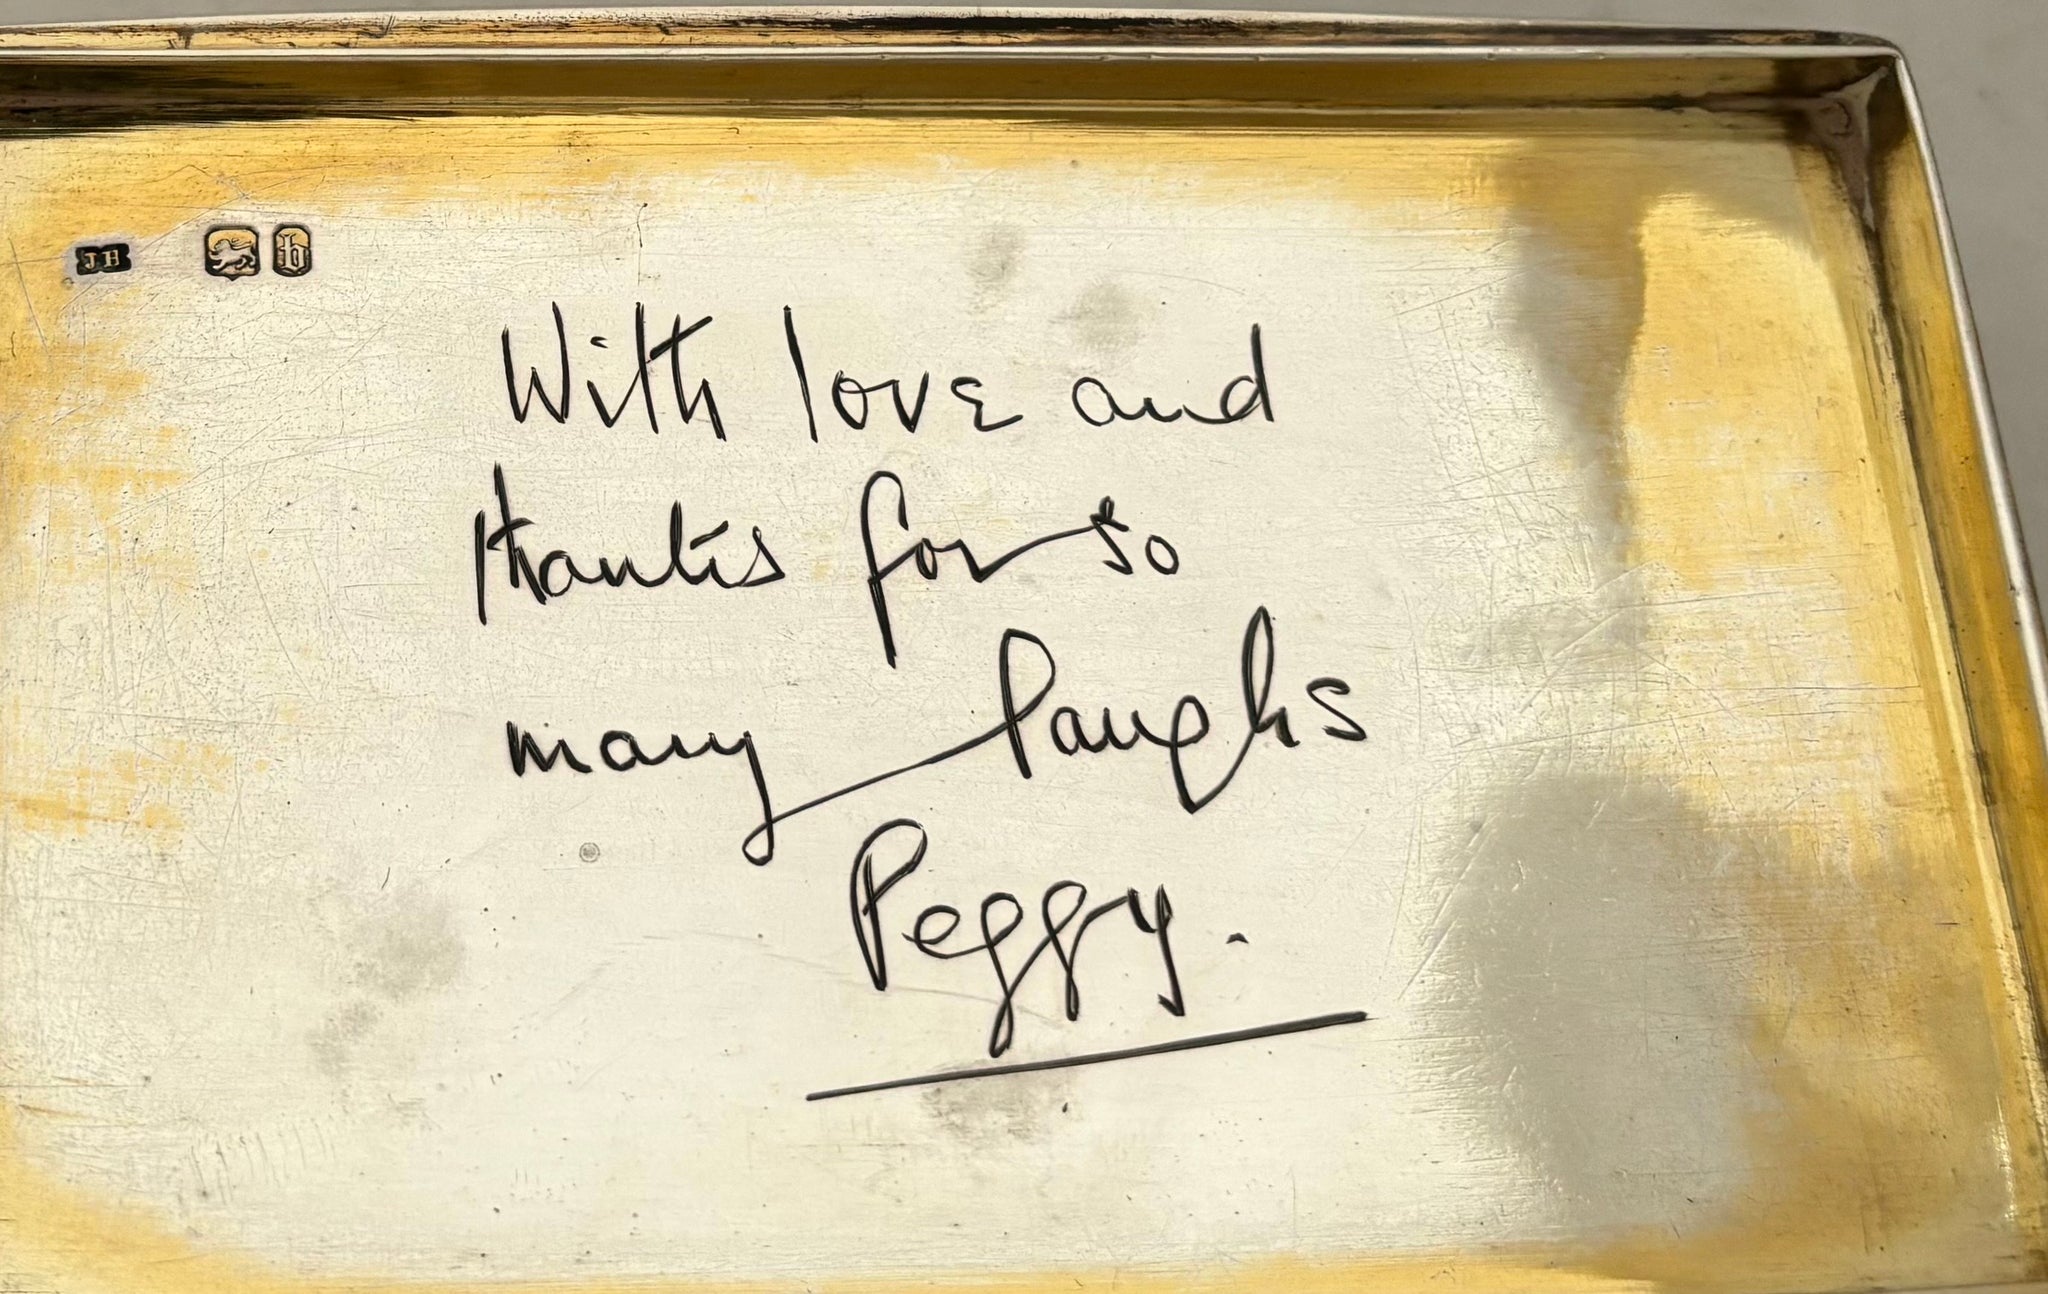 JH b
With love and
thanks for so
many laughs
Peggy.